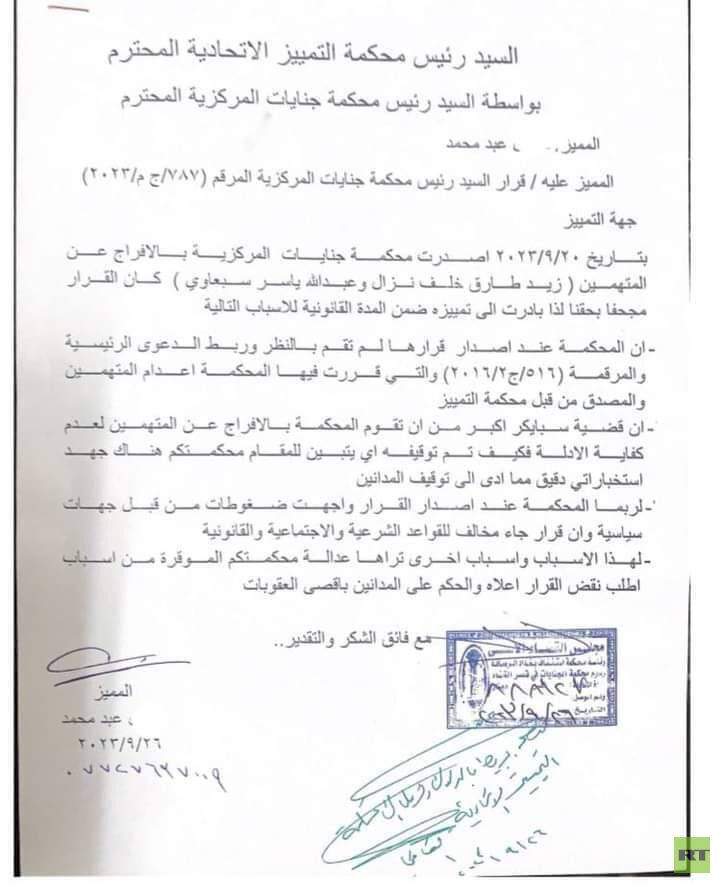 السيد رئيس محكمة التمييز الاتحادية المحترم
بواسطة السيد رئيس محكمة جنايات المركزية المحترم
المميز عبد محمد
المميز عليه / قرار السيد رئيس محكمة جنايات المركزية المرقم (٧٨٧/ج م/٢٠٢٣)
جهة التمييز
بتاريخ ٢٠٢٣/٩/٢٠ اصدرت محكمة جنايات المركزية بالافراج عن
المتهمين ( زيد طارق خلف نزال وعبدالله ياسر سبعاوي ) كان القرار
مجحفا بحقنا لذا بادرت الى تمييزه ضمن المدة القانونية للاسباب التالية
- ان المحكمة عند اصدار قرارها لم تقم بالنظر وربط الدعوى الرئيسية
والمرقمة (٥١٦/ج٢٠١٦/٢) والتي قررت فيها المحكمة اعدام المتهمين
والمصدق من قبل محكمة التمييز
- ان قضية سبايكر اكبر من ان تقوم المحكمة بالافراج عن المتهمين لعدم
كفاية الادلة فكيف تم توقيفه اي يتبين للمقام محكمتكم هناك جهد
استخباراتي دقيق مما ادى الى توقيف المدانين
- لربما المحكمة عند اصدار القرار واجهت ضغوطات من قبل جهات
سياسية وان قرار جاء مخالف للقواعد الشرعية والاجتماعية والقانونية
- لهذا الاسباب واسباب اخرى تراها عدالة محكمتكم الموقرة من اسباب
اطلب نقض القرار اعلاه والحكم على المدانين باقصى العقوبات
مع فائق الشكر والتقدير..
مجلس القضاء الأعلى
المميز
عبد محمد
٢٠٢٣/٩/٢٦
RT